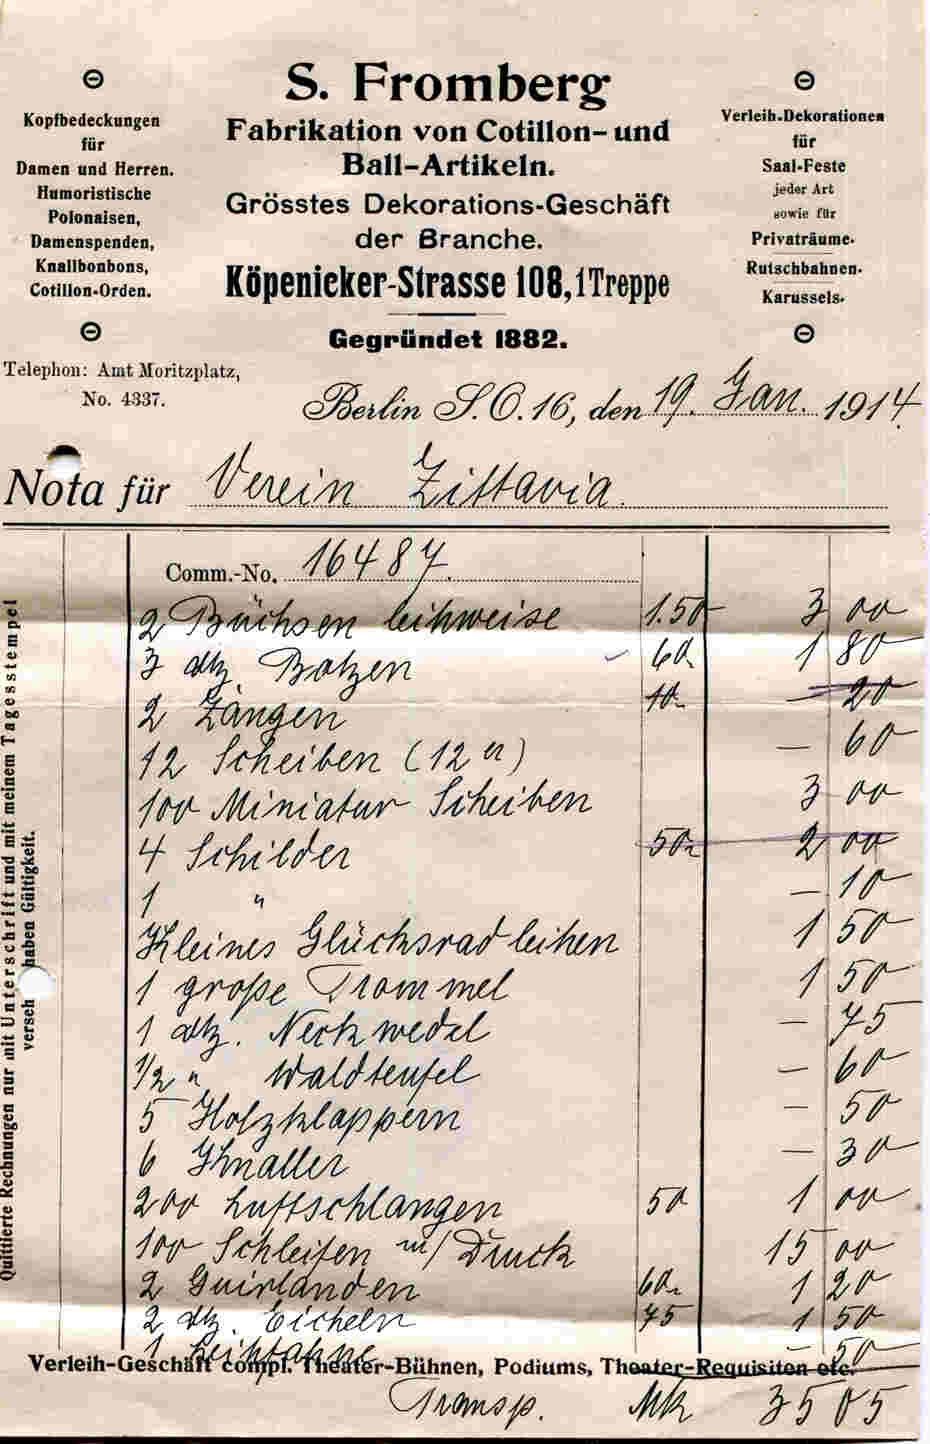 S. Fromberg
Fabrikation von Cotillon- und
Ball-Artikeln.
Grösstes Dekorations-Geschäft
der Branche.
Köpenicker-Strasse 108, 1 Treppe
Gegründet 1882.
Kopfbedeckungen
für
Damen und Herren.
Humoristische
Polonaisen,
Damenspenden,
Knallbonbons,
Cotillon-Orden.
Verleih-Dekorationen
für
Saal-Feste
jeder Art
sowie für
Privaträume.
Rutschbahnen.
Karussels.
Telephon: Amt Moritzplatz,
No. 4337.
Berlin S.O. 16, den 19. Jan. 1914.
Nota für Verein Zittavia.
Comm.-No. 16487.
2 Büchsen leihweise 1.50 3 00
3 dtz. Batzen 60 1 80
2 Zangen 10 — 20
12 Scheiben (12 a) — 60
100 Miniatur Scheiben 3 00
4 Schilder 50 2 00
1 " — 10
Kleines Glücksrad leihen 1 50
1 große Trommel 1 50
1 dtz. Neckwedel — 75
1/2 " Waldteufel — 60
5 Holzklappern — 50
6 Knaller — 30
200 Luftschlangen 50 1 00
100 Schleifen m/ Druck 15 00
2 Guirlanden 60 1 20
2 dtz. Eicheln 75 1 50
1 Leihfahne — 50
Verleih-Geschäft compl. Theater-Bühnen, Podiums, Theater-Requisiten etc.
Transp. Mk 35 05
Quittierte Rechnungen nur mit Unterschrift und mit meinem Tagesstempel
verseh haben Gültigkeit.